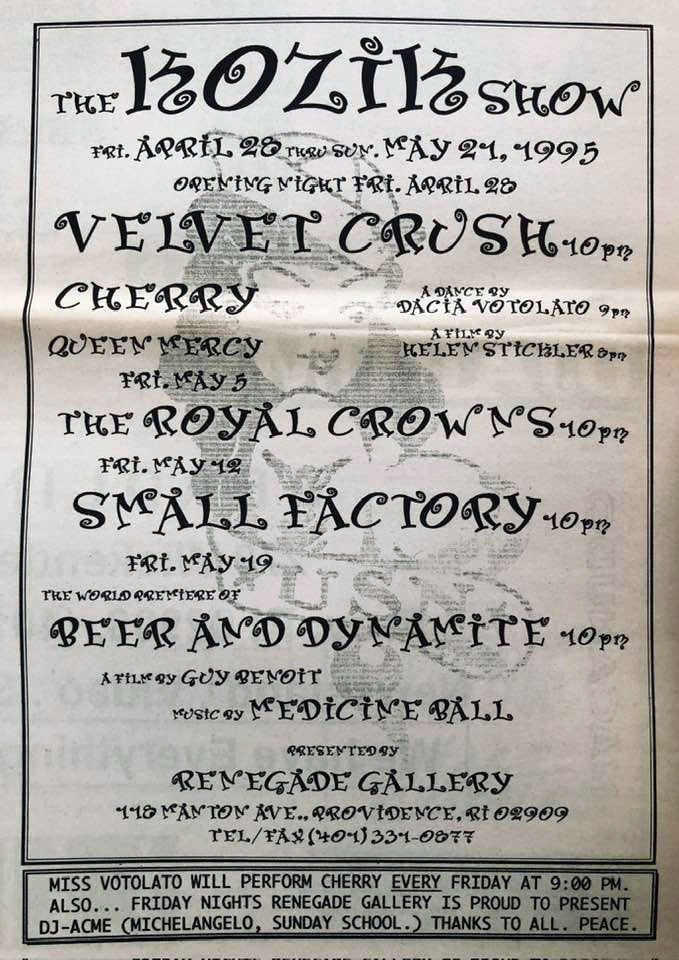 THE KOZIK SHOW
FRI. APRIL 28 THRU SUN. MAY 21, 1995
OPENING NIGHT FRI. APRIL 28
VELVET CRUSH 10pm
CHERRY A DANCE BY DACIA VOTOLATO 9pm
QUEEN MERCY A FILM BY HELEN STICKLER 8pm
FRI. MAY 5
THE ROYAL CROWNS 10pm
FRI. MAY 12
SMALL FACTORY 10pm
FRI. MAY 19
THE WORLD PREMIERE OF
BEER AND DYNAMITE 10pm
A FILM BY GUY BENOIT
MUSIC BY MEDICINE BALL
PRESENTED BY
RENEGADE GALLERY
118 MANTON AVE., PROVIDENCE, RI 02909
TEL/FAX (401) 331-0877
MISS VOTOLATO WILL PERFORM CHERRY EVERY FRIDAY AT 9:00 PM.
ALSO... FRIDAY NIGHTS RENEGADE GALLERY IS PROUD TO PRESENT
DJ-ACME (MICHELANGELO, SUNDAY SCHOOL.) THANKS TO ALL. PEACE.